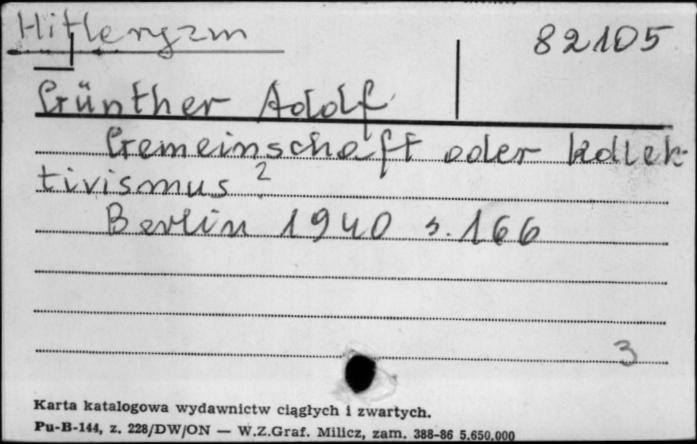 Hitleryzm
82105
Günther Adolf
Gemeinschaft oder kollek-
tivismus?
Berlin 1940 s. 166
3
Karta katalogowa wydawnictw ciągłych i zwartych.
Pu-B-144, z. 228/DW/ON — W.Z.Graf. Milicz, zam. 388-86 5.650.000